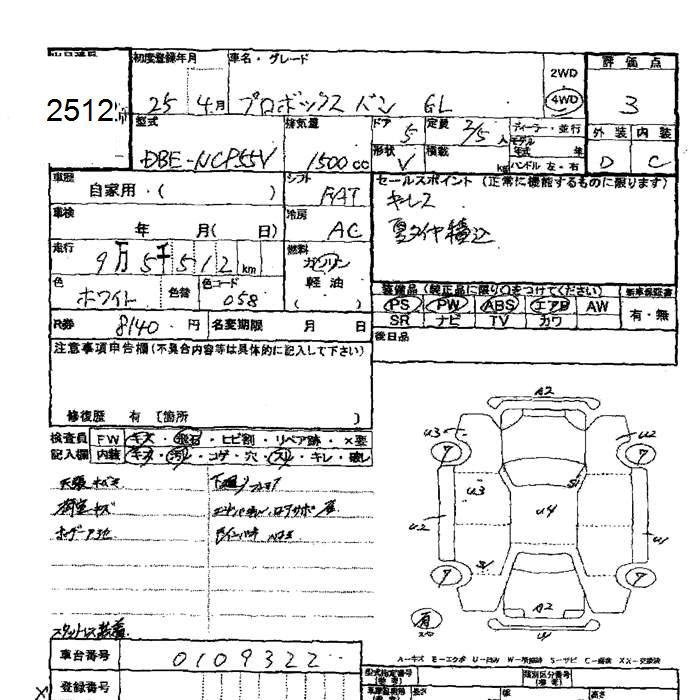 初度登録年月 車名・グレード 評価点
2512 25 4月 プロボックス バン GL 2WD 4WD 3
型式 排気量 ドア 5 定員 2/5 人 ディーラー・並行 外装 内装
DBE-NCP55V 1500cc 形状 V 積載 kg モデル年式 年 ハンドル 左・右 D C
車歴 自家用・( ) シフト FAT セールスポイント (正常に機能するものに限ります)
車検 年 月( 日) 冷房 AC キーレス
夏タイヤ積込
走行 9万5千512km 燃料 ガソリン
色 ホワイト 色替 色コード 058 軽油 ( )
装備品 (純正品に限り○をつけてください) 新車保証書
PS PW ABS エアB AW 有・無
R券 8140 円 名変期限 月 日 SR ナビ TV カワ
注意事項申告欄(不具合内容等は具体的に記入して下さい) 後日品
修復歴 有 [箇所 ]
検査員 FW キズ・飛石・ヒビ割・リペア跡・×要
記入欄 内装 キズ・汚れ・コゲ・穴・スレ・キレ・破レ
A2
U3 U2
7 7
U3 S1
U2 U4 U1
S1
7 7
A2
有
スタットレス装着
A-キズ E-エクボ U-凹み W-補修跡 S-サビ C-腐食 XX-交換済
車台番号 0109322
登録番号 型式指定番号 (参考) 類別区分番号 (参考)
長さ 幅 高さ